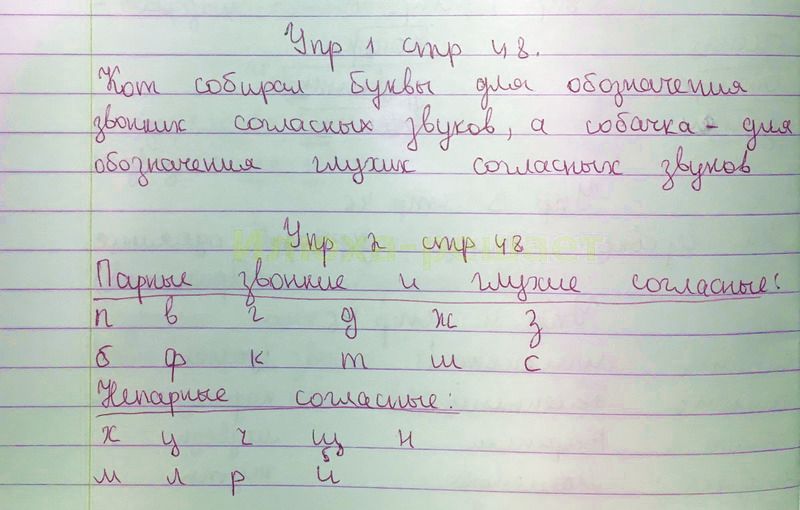 Упр 1 стр 48.
Кот собирал буквы для обозначения
звонких согласных звуков, а собачка - для
обозначения глухих согласных звуков
Упр 2 стр 48
Парные звонкие и глухие согласные:
п в г д ж з
б ф к т ш с
Непарные согласные:
х ц ч щ н
м л р й